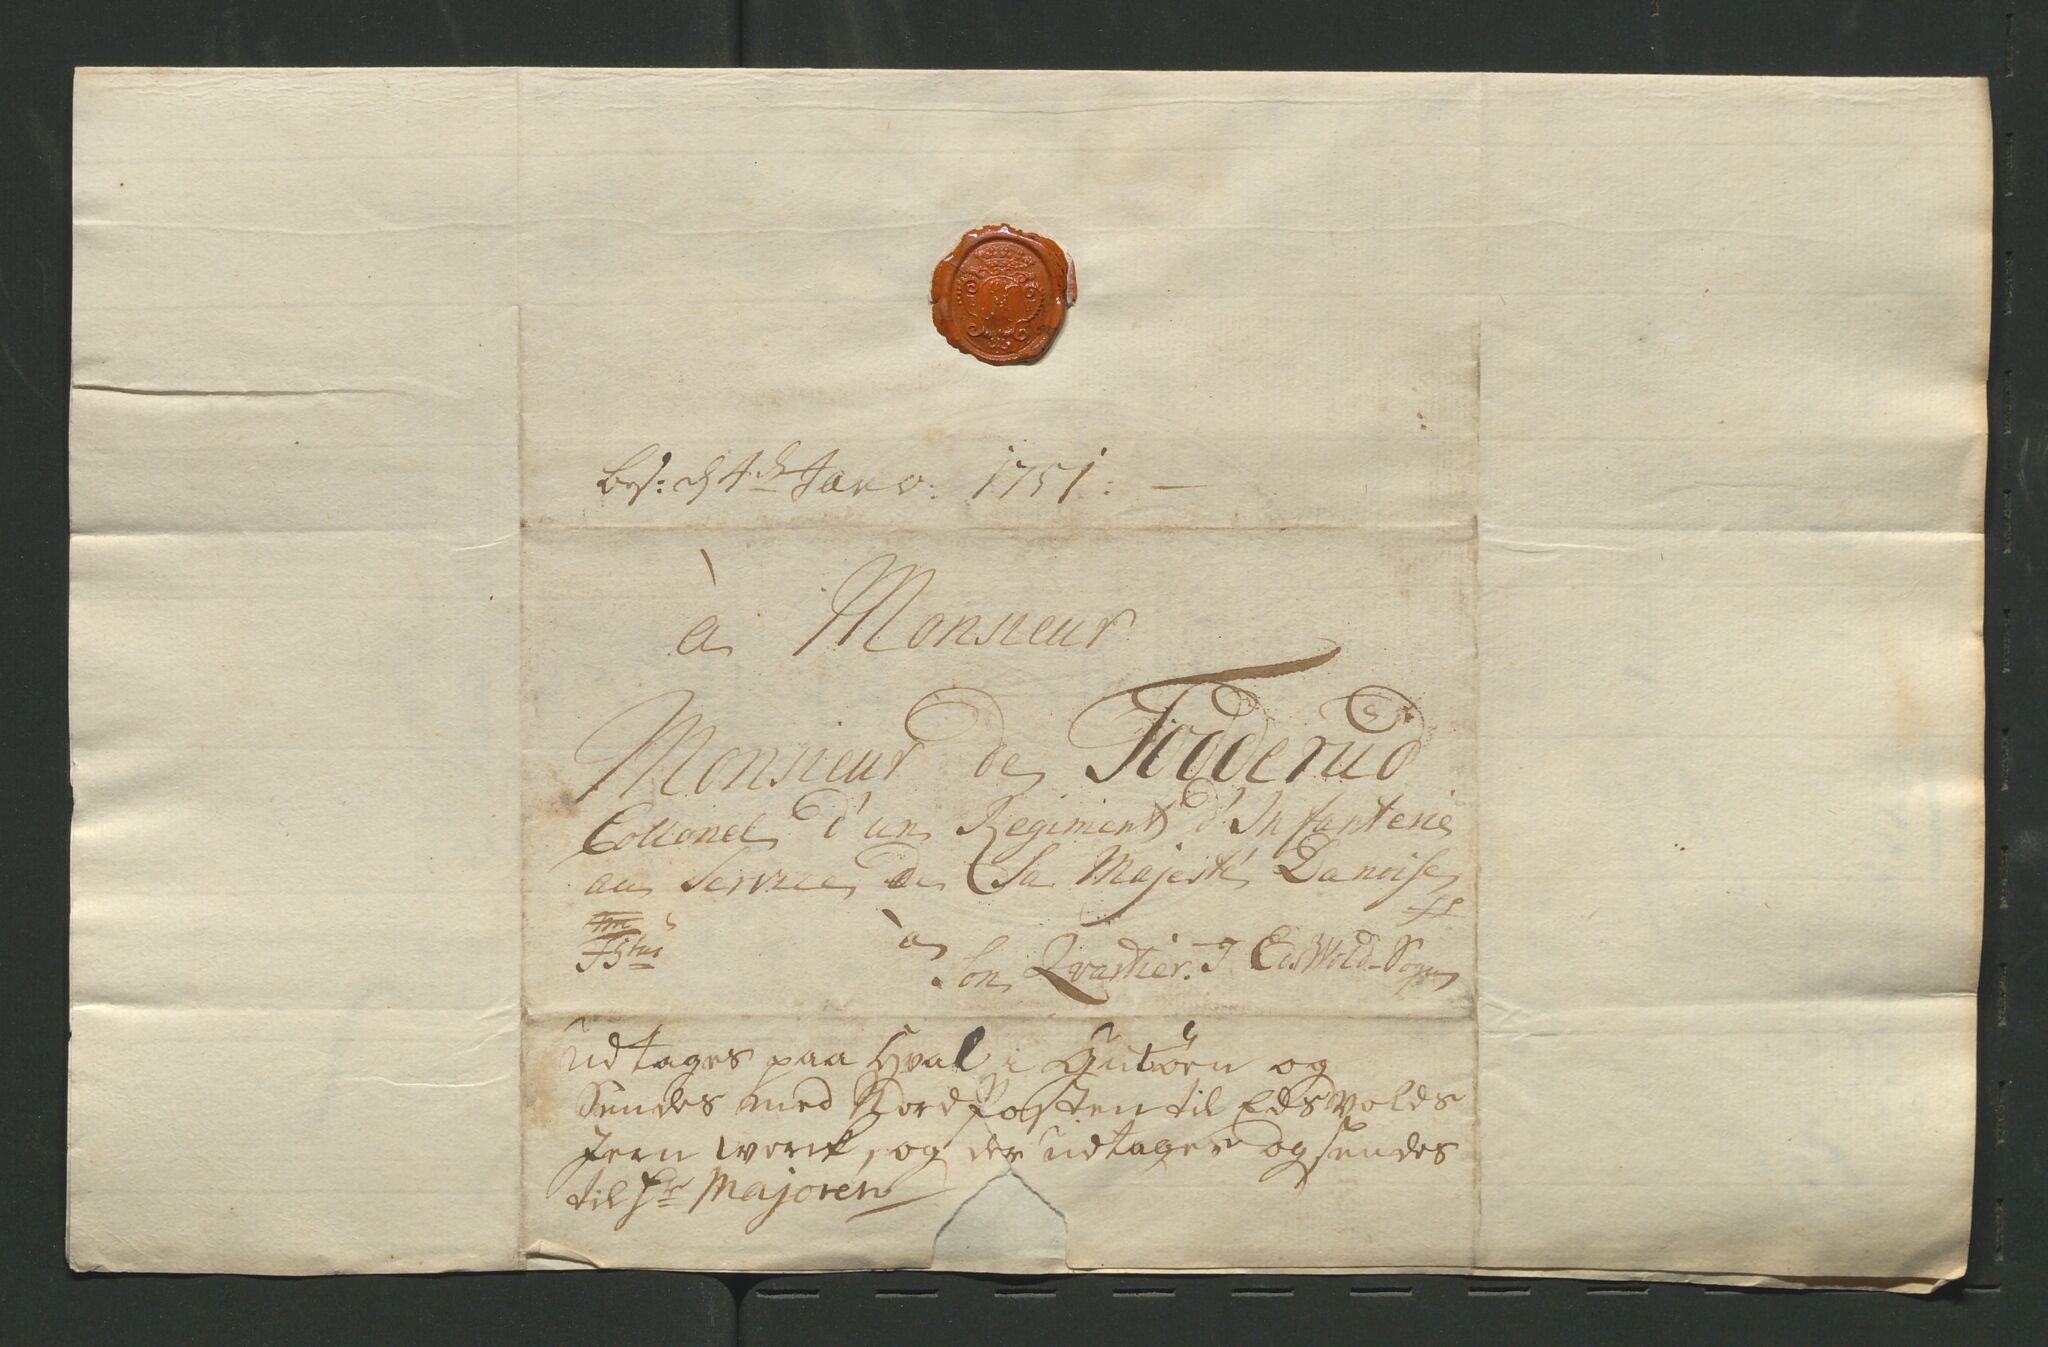 bes: d 4de Janv: 1751: —
à Monsieur
Monsieur de Todderud
Collonel d'un Regiment d'Infanterie
au Service de Sa Majesté Danoise
à
Son Qvartier. I EdsWold-Sogn
udtages paa Hval i
og
Sendes med Nord Posten til Edsvolds
Jern werck, og der udtages og sendes
til Hr Majoren